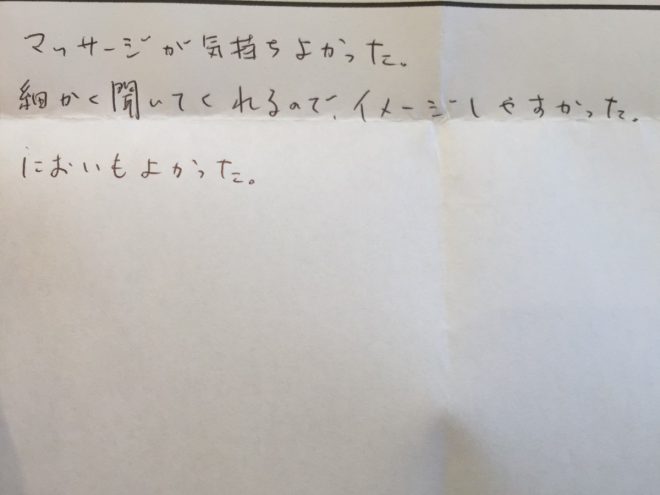 マッサージが気持ちよかった。
細かく聞いてくれるので、イメージしやすかった。
においもよかった。